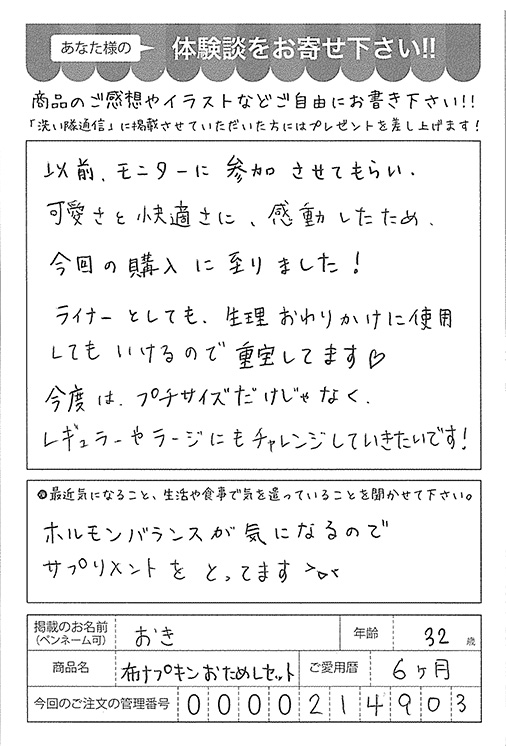 あなた様の 体験談をお寄せ下さい!!
商品のご感想やイラストなどご自由にお書き下さい!!
「洗い隊通信」に掲載させていただいた方にはプレゼントを差し上げます!
以前、モニターに参加させてもらい、
可愛さと快適さに、感動したため、
今回の購入に至りました!
ライナーとしても、生理おわりかけに使用
してもいけるので重宝してます♡
今度は、プチサイズだけじゃなく、
レギュラーやラージにもチャレンジしていきたいです!
最近気になること、生活や食事で気を遣っていることを聞かせて下さい。
ホルモンバランスが気になるので
サプリメントをとってます
掲載のお名前 おき 年齢 32 歳
(ペンネーム可)
商品名 布ナプキンおためしセット ご愛用暦 6ヶ月
今回のご注文の管理番号 0000214903